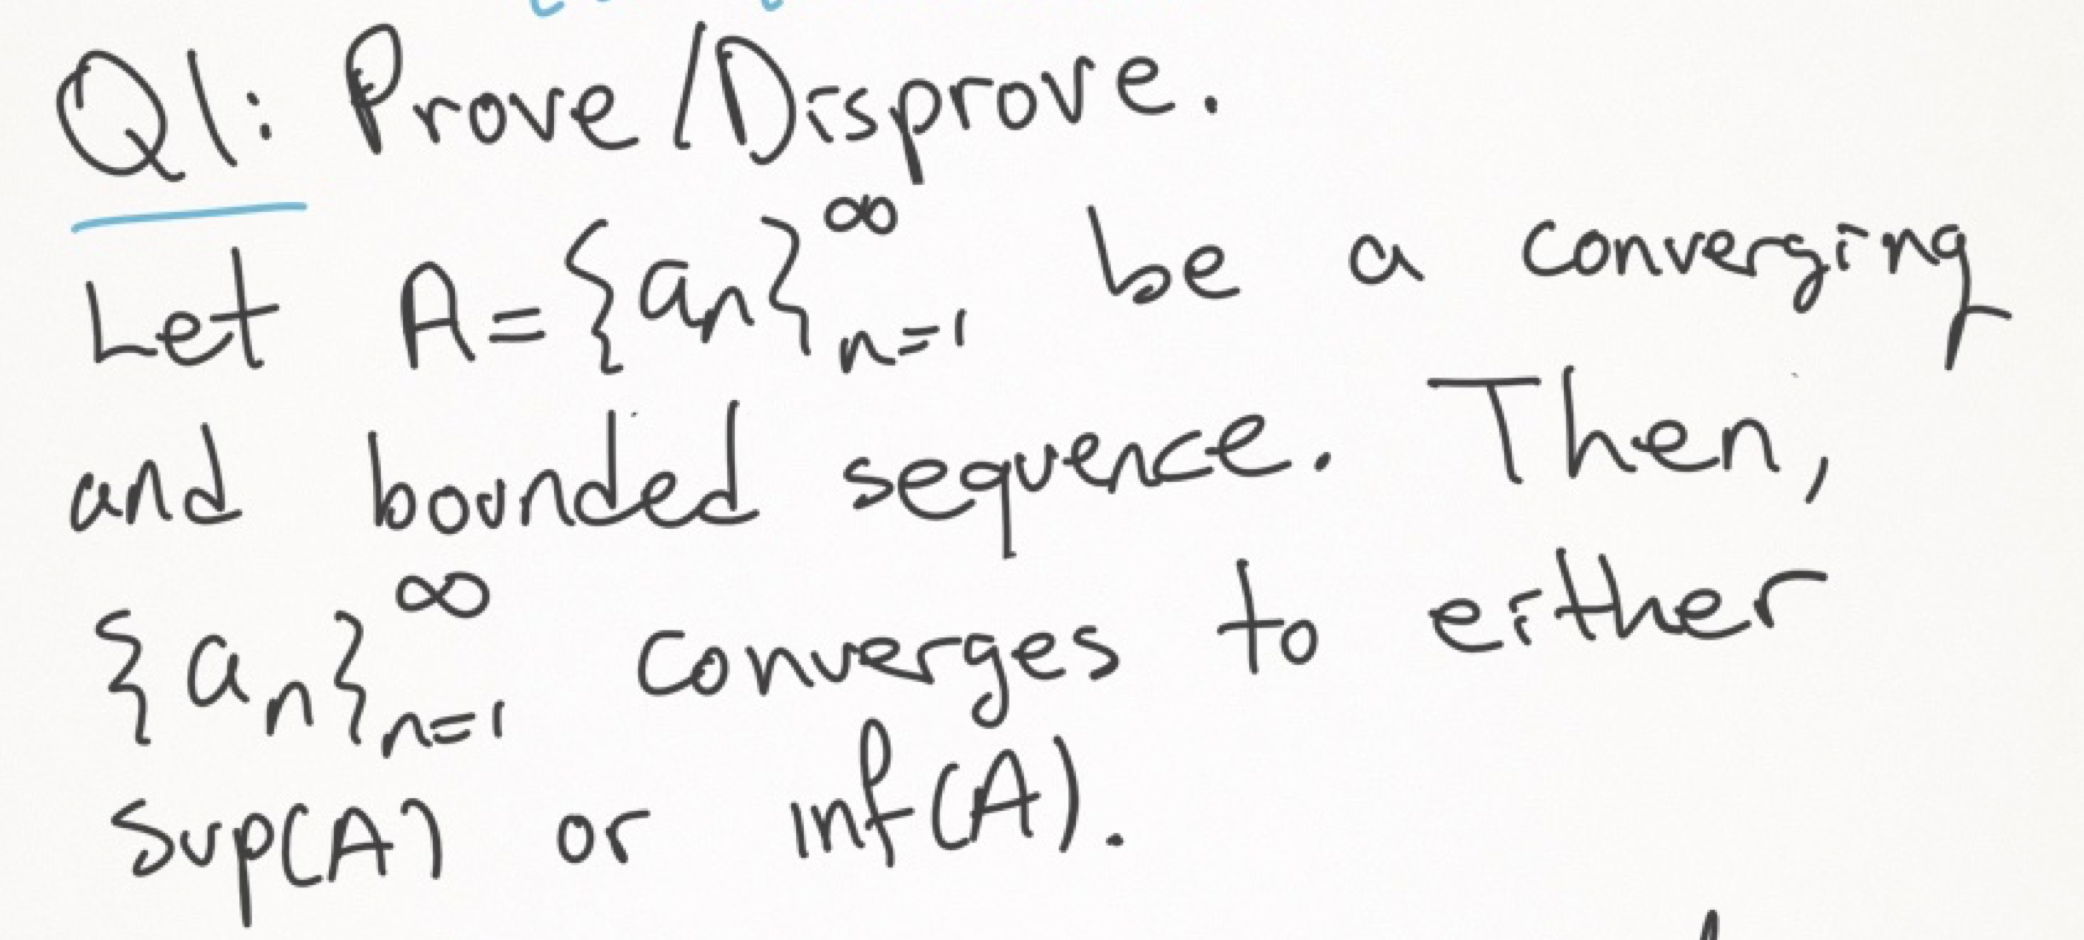 Q1: Prove/Disprove.
Let A={aₙ}∞ₙ₌₁ be a converging
and bounded sequence. Then,
{aₙ}∞ₙ₌₁ converges to either
sup(A) or inf(A).